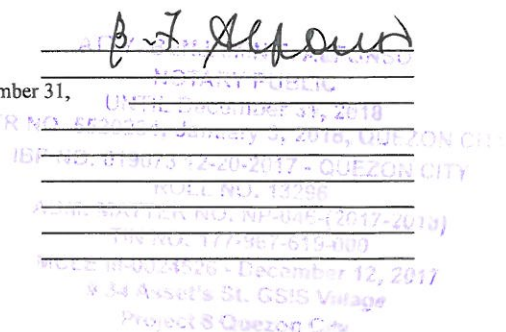 ALFONSO
NOTARY PUBLIC
mber 31,
UNTIL December 31, 2018
TR NO. January 3, 2018, QUEZON CIT
IBP NO. 019073 12-20-2017 - QUEZON CITY
ROLL NO. 13296
ADM. MATTER NO. NP-046-(2017-2018)
TIN NO. 177-967-619-000
MCLE III-0024526 - December 12, 2017
# 34 Asset's St. GSIS Village
Project 8 Quezon City